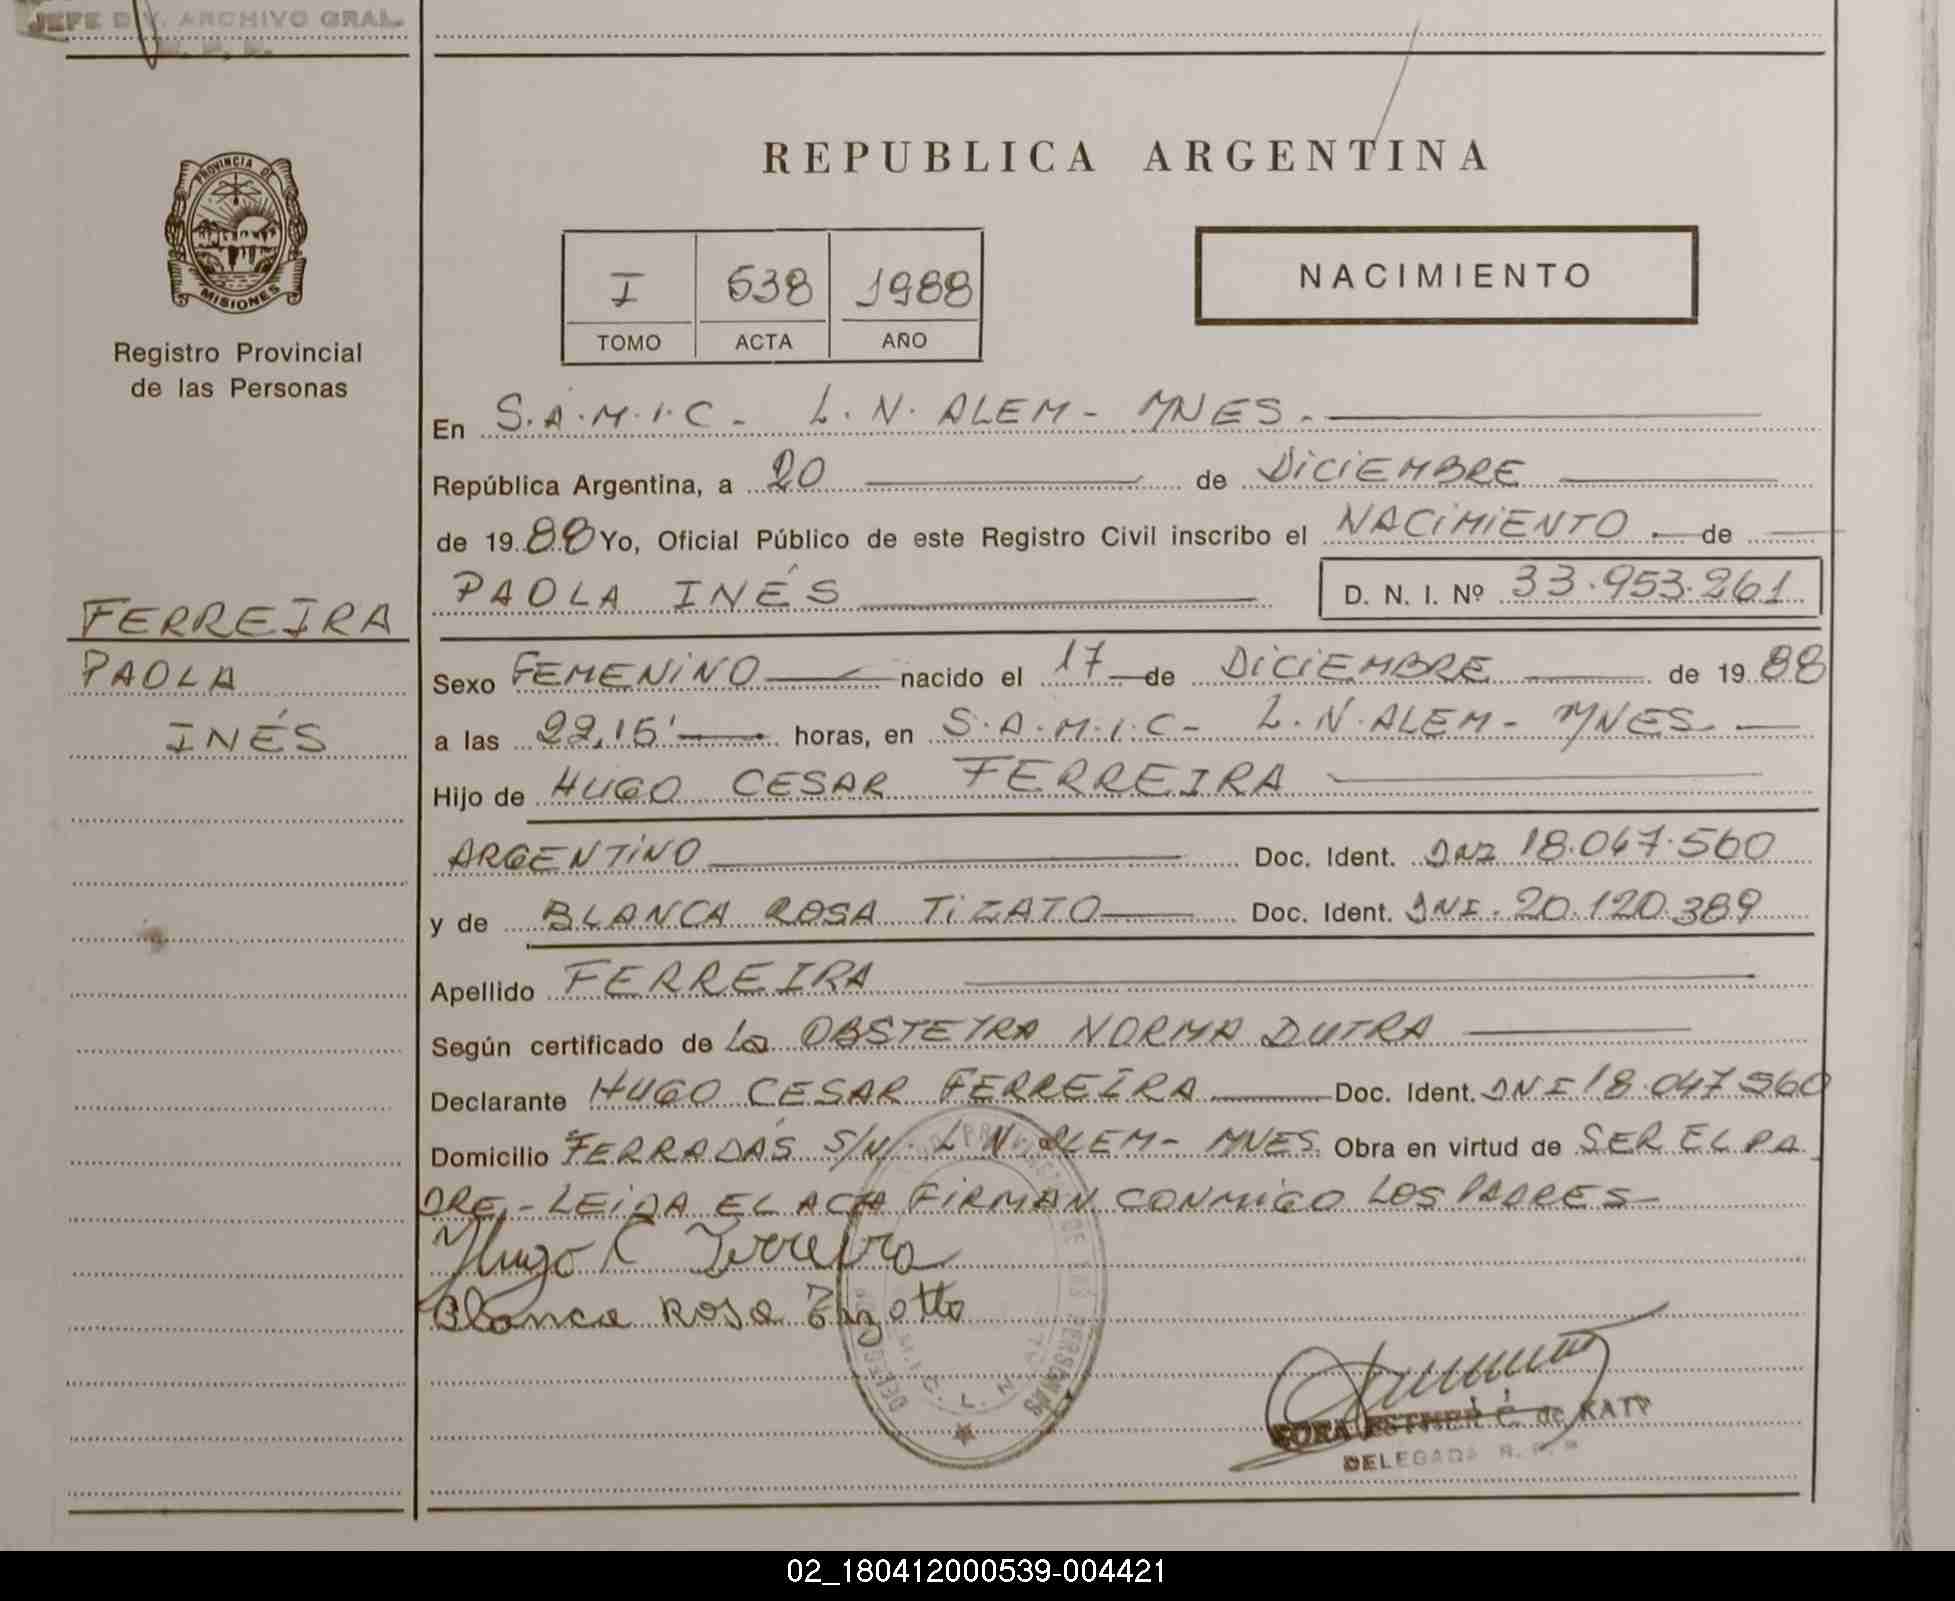 JEFE DIV. ARCHIVO GRAL.
REPUBLICA ARGENTINA
PROVINCIA DE
MISIONES
Registro Provincial
de las Personas
I 538 1988
TOMO ACTA AÑO
NACIMIENTO
En S.A.M.I.C - L.N. ALEM - MNES.
República Argentina, a 20 de DICIEMBRE
de 1988 Yo, Oficial Público de este Registro Civil inscribo el NACIMIENTO de
PAOLA INÉS D. N. I. Nº 33.953.261
FERREIRA
PAOLA
INÉS
Sexo FEMENINO nacido el 17 de DICIEMBRE de 1988
a las 22,15' horas, en S.A.M.I.C - L.N. ALEM - MNES
Hijo de HUGO CESAR FERREIRA
ARGENTINO Doc. Ident. DNI 18.047.560
y de BLANCA ROSA TIZATO Doc. Ident. DNI. 20.120.389
Apellido FERREIRA
Según certificado de La OBSTETRA NORMA DUTRA
Declarante HUGO CESAR FERREIRA Doc. Ident. DNI 18.047.560
Domicilio FERRADÁS S/N. L N ALEM - MNES. Obra en virtud de SER EL PA
DRE.- LEIDA EL ACTA FIRMAN CONMIGO LOS PADRES
Hugo C Ferreira
Blanca Rosa Tizatto
ESTHER C. de KATP
DELEGADA R. P. P.
02_180412000539-004421